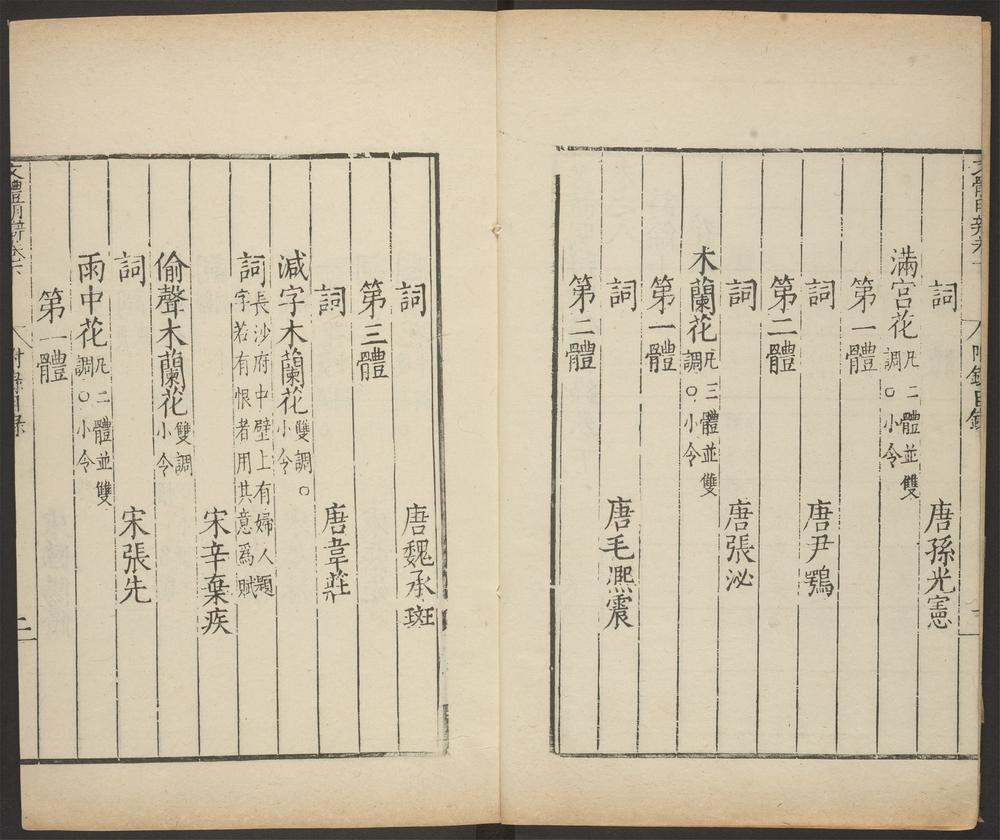 詞 唐孫光憲
滿宮花凡二體並雙調○小令
第一體
詞 唐尹鶚
第二體
詞 唐張泌
木蘭花凡三體並雙調○小令
第一體
詞 唐毛凞震
第二體
詞 唐魏承班
第三體
詞 唐韋莊
減字木蘭花雙調○小令
詞長沙府中壁上有婦人題字若有恨者用其意爲賦
宋辛棄疾
偷聲木蘭花雙調小令
詞 宋張先
雨中花凡二體並雙調○小令
第一體
附錄目錄
二